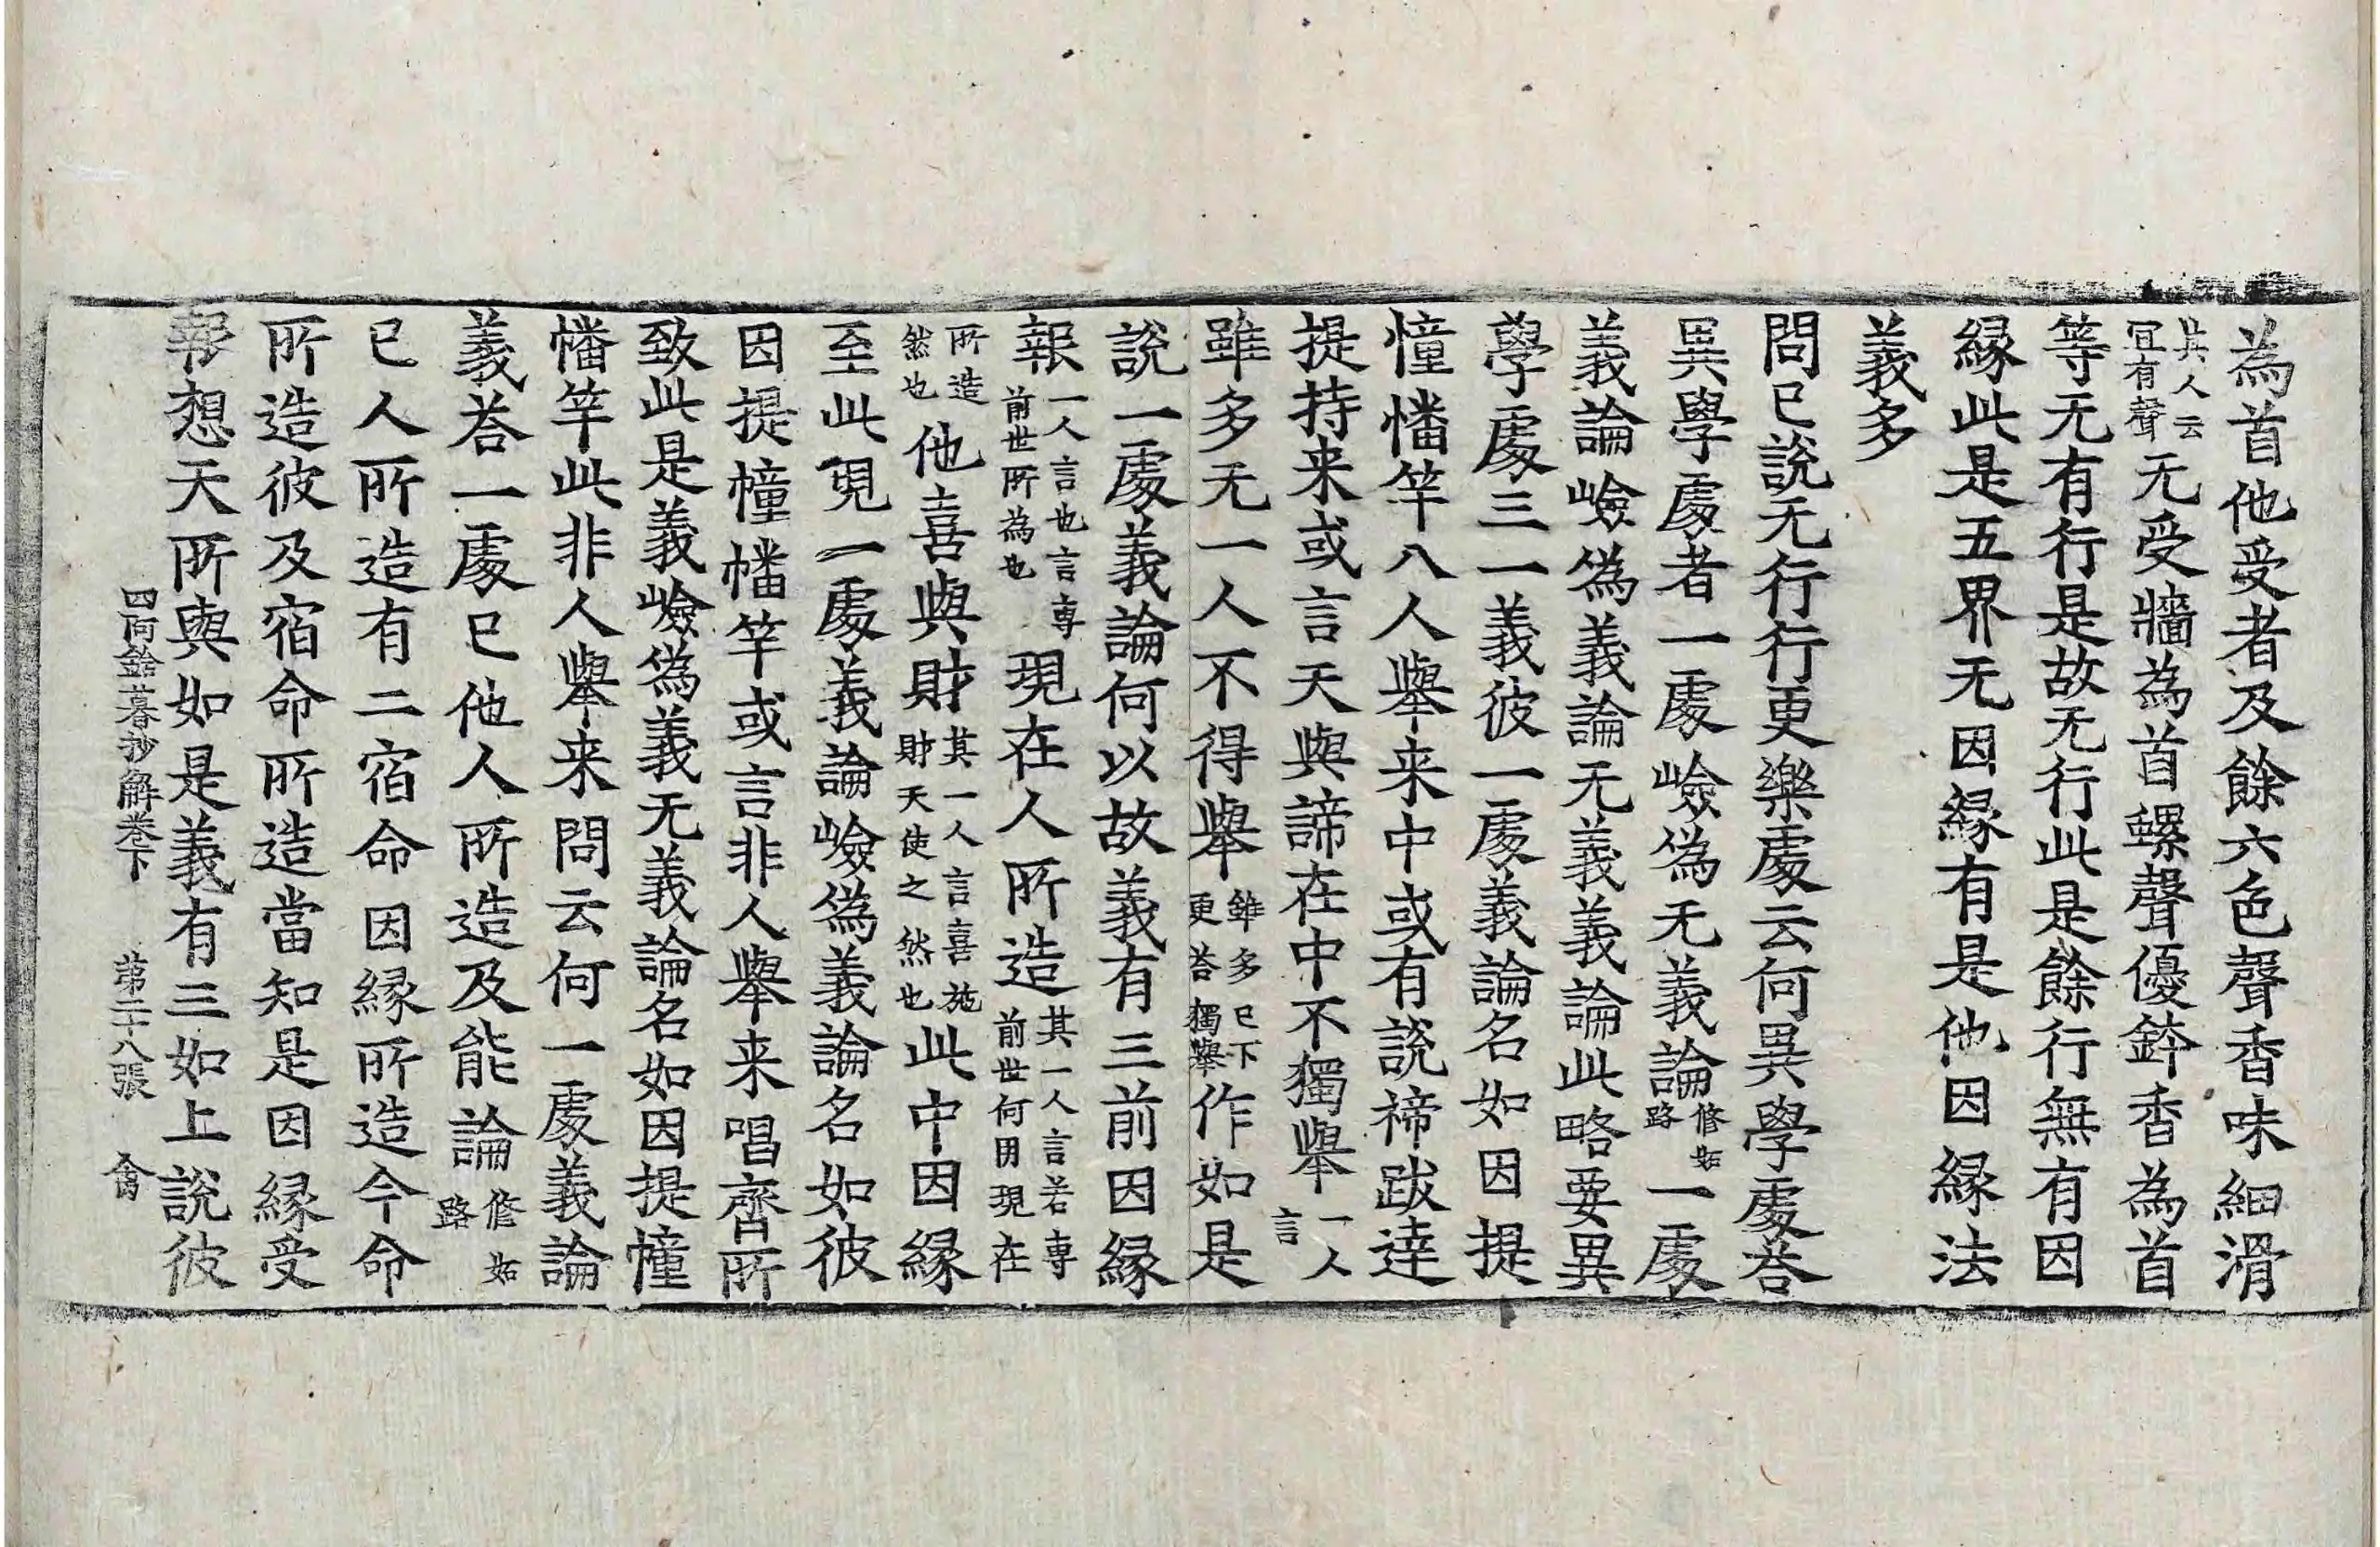 為首他受者及餘六色聲香味細滑
其人云冝有聲无受牆為首螺聲優鉢香為首
等无有行是故无行此是餘行無有因
縁此是五界无因縁有是他因縁法
義多
問已說无行行更樂處云何異學處荅
異學處者一處嶮為无義論修妬路一處
義論嶮為義論无義義論此略要異
學處三一義彼一處義論名如因提
憧幡竿八人舉来中或有說褅跋達
提持来或言天與諦在中不獨舉一人言
雖多无一人不得舉雖多已下更荅獨舉作如是
說一處義論何以故義有三前因縁
報一人言也言專前世所為也現在人所造其一人言若專前世何用現在
所造然也他喜與財其一人言喜施財天使之然也此中因縁
至此現一處義論嶮為義論名如彼
因提幢幡竿或言非人舉来唱齊所
致此是義嶮為義无義論名如因提幢
幡竿此非人舉来問云何一處義論
義荅一處已他人所造及能論修妬路
已人所造有二宿命因縁所造今命
所造彼及宿命所造當知是因縁受
報想天所與如是義有三如上說彼
四阿鋡暮抄解卷下 第二十八張 禽